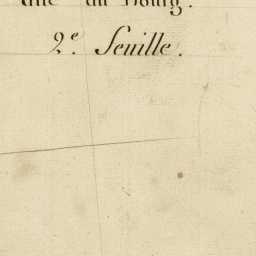 du Bourg.
2e. Feuille.